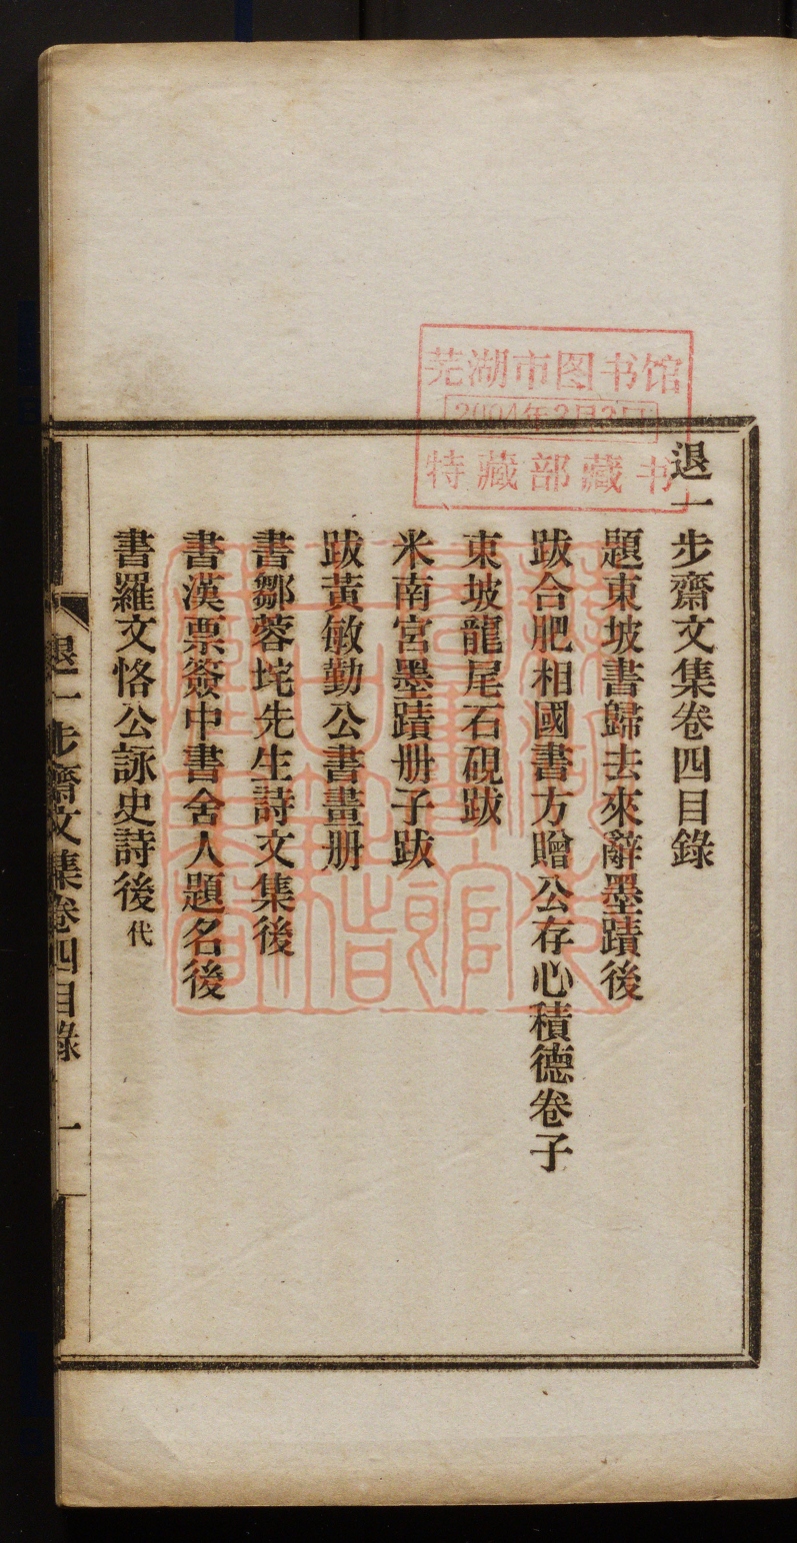 芜湖市图书馆
2004年2月2日
特藏部藏书
退一步齋文集卷四目錄
題東坡書歸去來辭墨蹟後
跋合肥相國書方贈公存心積德卷子
東坡龍尾石硯跋
米南宮墨蹟册子跋
跋黃敏勤公書畫册
書鄒蓉垞先生詩文集後
書漢票簽中書舍人題名後
書羅文恪公詠史詩後代
退一步齋文集卷四目錄 一